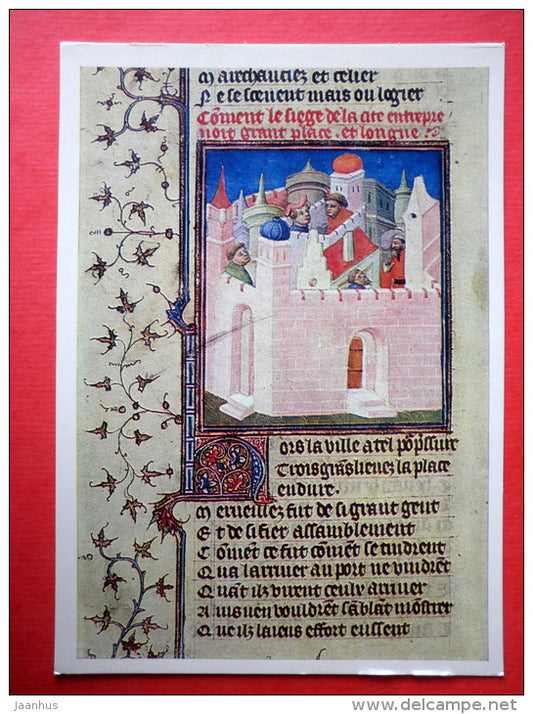 Marechauciez et celier
Ne se scevent mais ou logier
Cōment le siege de la cite entrepre
noit grant place . et longue .
Hors la ville a tel po᷑psuire
Trois grās lieuez la place
enduire .
Merueillez fut de si grant gent
Et de si fier assamblement
Cōment ce fut cōment se tindrent
Qua larriuer au port ne vindrēt
Quāt ilz virent ceulx arriuer
A ius nen vouldrēt sāblāt mōstrer
Que ilz laiens effort eussent
Jaanhus
www.delcampe.net